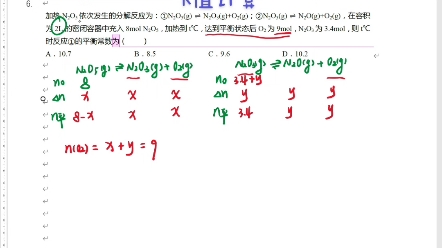 K值计算
6.
加热 N₂O₅依次发生的分解反应为：①N₂O₅(g) ⇌ N₂O₃(g)+O₂(g)；②N₂O₃(g) ⇌ N₂O(g)+O₂(g)，在容积
为 2L 的密闭容器中充入 8mol N₂O₅，加热到 t℃，达到平衡状态后 O₂为 9mol，N₂O₃为 3.4mol，则 t℃
时反应①的平衡常数为（ ）
A．10.7 B．8.5 C．9.6 D．10.2
N₂O₅(g) ⇌ N₂O₃(g) + O₂(g) N₂O₃(g) ⇌ N₂O(g) + O₂(g)
n₀ 8 n₀ 3.4+y
Δn x x x Δn y y y
n平 8-x x x n平 3.4 y y
n(O₂) = x + y = 9